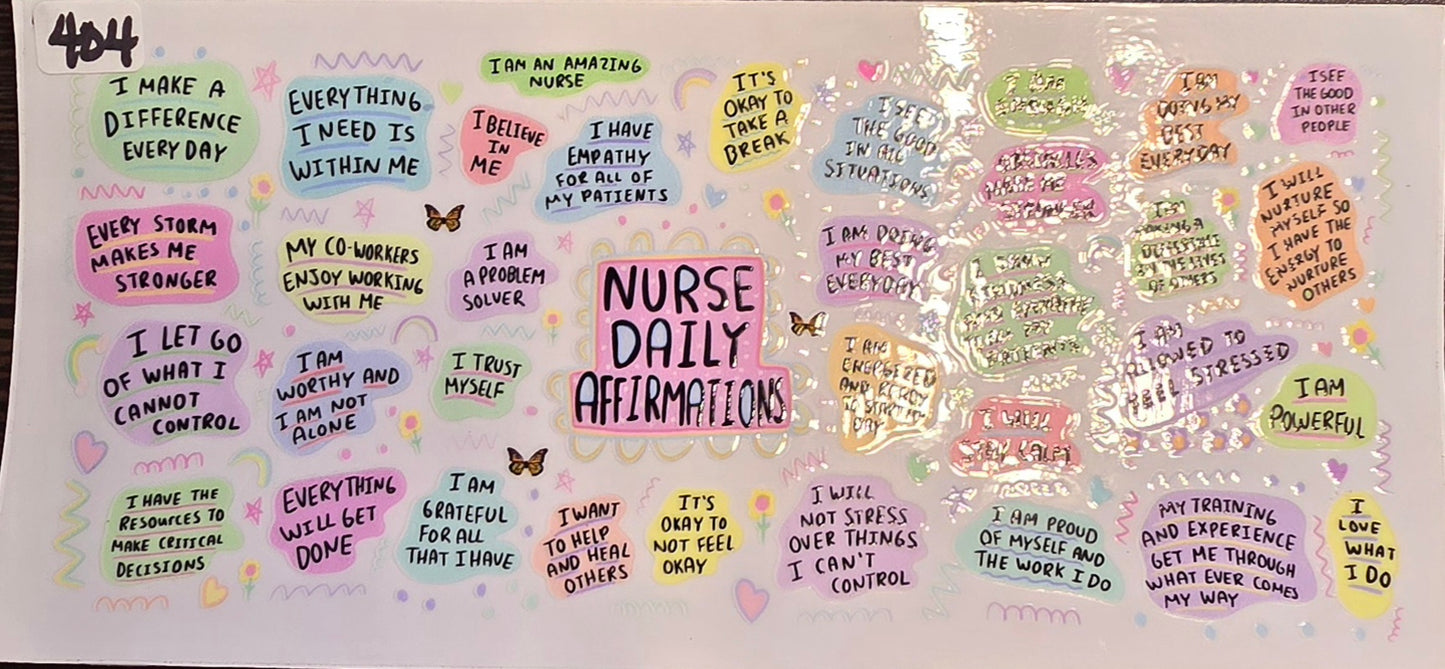 404
I MAKE A
DIFFERENCE
EVERY DAY
EVERYTHING
I NEED IS
WITHIN ME
I AM AN AMAZING
NURSE
I BELIEVE
IN
ME
I HAVE
EMPATHY
FOR ALL OF
MY PATIENTS
IT'S
OKAY TO
TAKE A
BREAK
I SEE
THE GOOD
IN ALL
SITUATIONS
I AM
I AM
DOING MY
BEST
EVERYDAY
I SEE
THE GOOD
IN OTHER
PEOPLE
EVERY STORM
MAKES ME
STRONGER
MY CO-WORKERS
ENJOY WORKING
WITH ME
I AM
A PROBLEM
SOLVER
NURSE
DAILY
AFFIRMATIONS
I AM DOING
MY BEST
EVERYDAY
MAKE ME
I AM
MAKING A
DIFFERENCE
IN THE LIVES
OF OTHERS
I WILL
NURTURE
MYSELF SO
I HAVE THE
ENERGY TO
NURTURE
OTHERS
I LET GO
OF WHAT I
CANNOT
CONTROL
I AM
WORTHY AND
I AM NOT
ALONE
I TRUST
MYSELF
I AM
ENERGIZED
AND READY
TO START MY
DAY
I
KINDNESS
I WILL
STAY CALM
I AM
ALLOWED TO
FEEL STRESSED
I AM
POWERFUL
I HAVE THE
RESOURCES TO
MAKE CRITICAL
DECISIONS
EVERYTHING
WILL GET
DONE
I AM
GRATEFUL
FOR ALL
THAT I HAVE
I WANT
TO HELP
AND HEAL
OTHERS
IT'S
OKAY TO
NOT FEEL
OKAY
I WILL
NOT STRESS
OVER THINGS
I CAN'T
CONTROL
I AM PROUD
OF MYSELF AND
THE WORK I DO
MY TRAINING
AND EXPERIENCE
GET ME THROUGH
WHAT EVER COMES
MY WAY
I
LOVE
WHAT
I DO